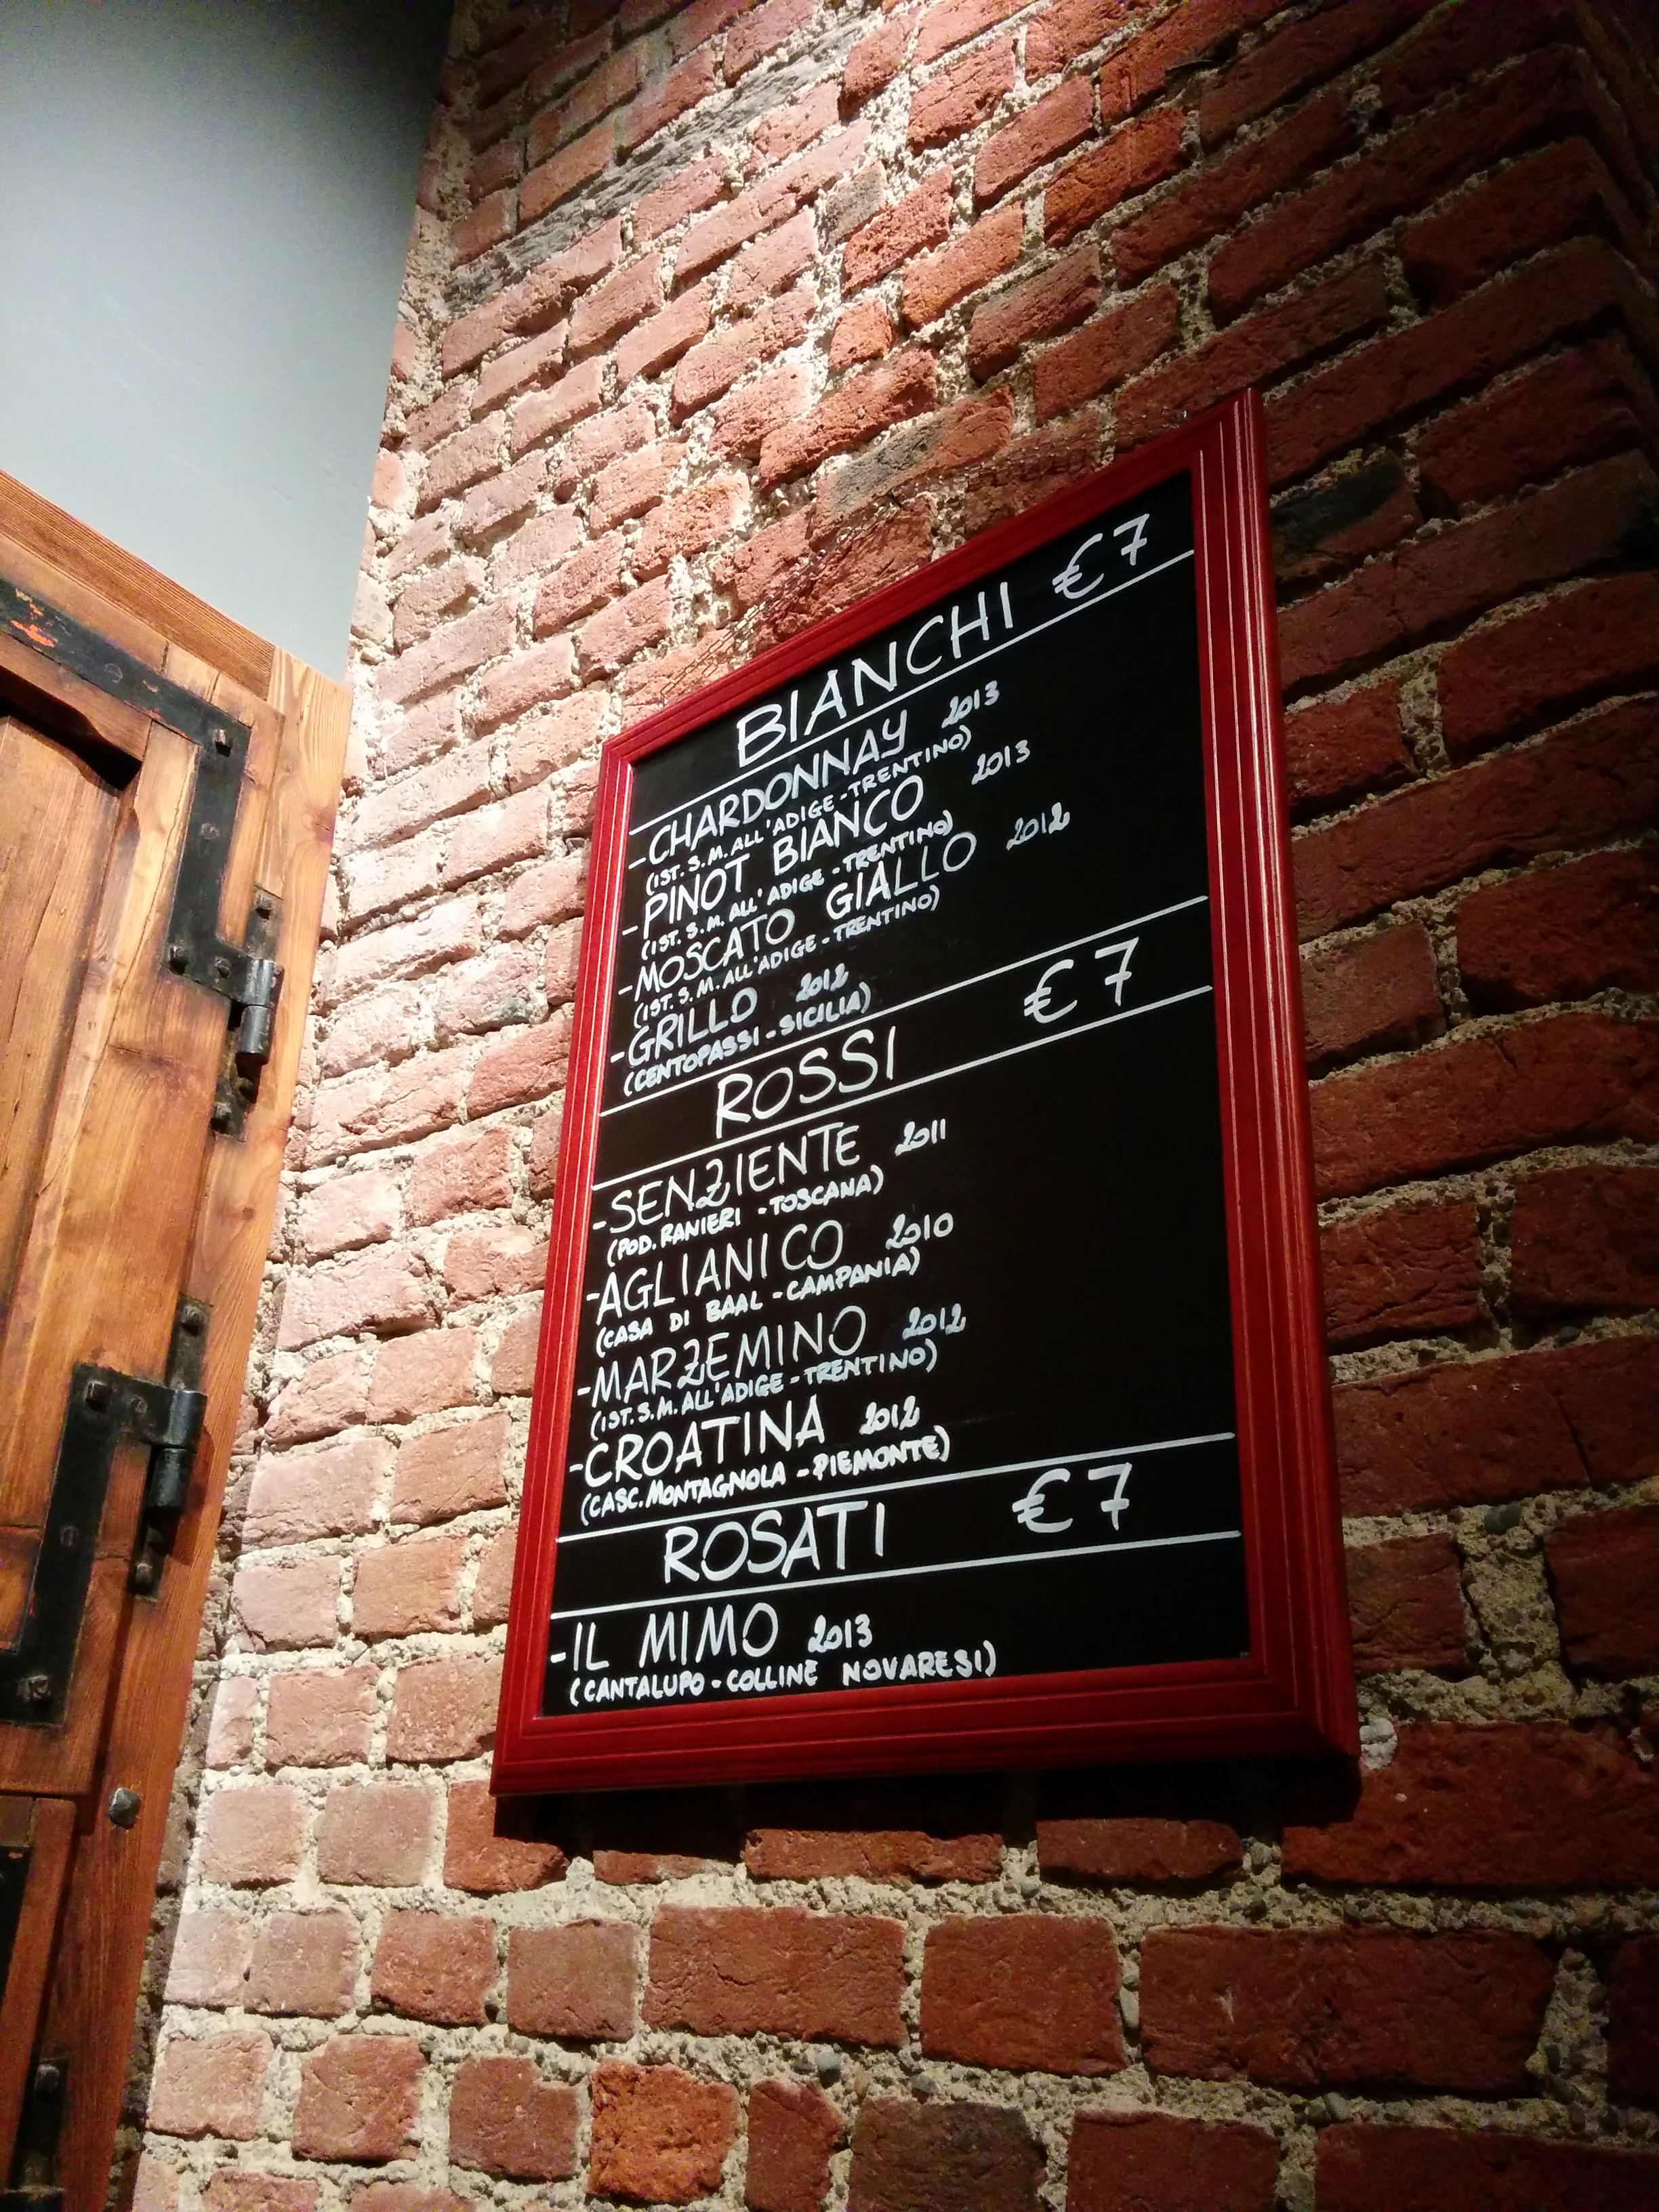 BIANCHI €7
-CHARDONNAY 2013
(IST. S. M. ALL'ADIGE - TRENTINO)
-PINOT BIANCO 2013
(IST. S. M. ALL'ADIGE - TRENTINO)
-MOSCATO GIALLO 2012
(IST. S. M. ALL'ADIGE - TRENTINO)
-GRILLO 2012
(CENTOPASSI - SICILIA)
ROSSI €7
-SENZIENTE 2011
(POD. RANIERI - TOSCANA)
-AGLIANICO 2010
(CASA DI BAAL - CAMPANIA)
-MARZEMINO 2012
(IST. S. M. ALL'ADIGE - TRENTINO)
-CROATINA 2012
(CASC. MONTAGNOLA - PIEMONTE)
ROSATI €7
-IL MIMO 2013
(CANTALUPO - COLLINE NOVARESI)